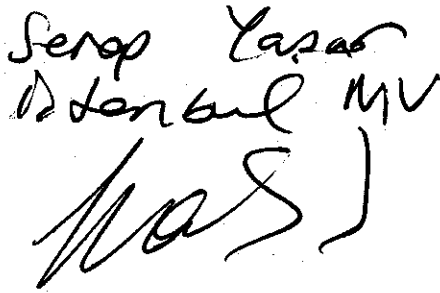 Serap Yaşar
İstanbul MV